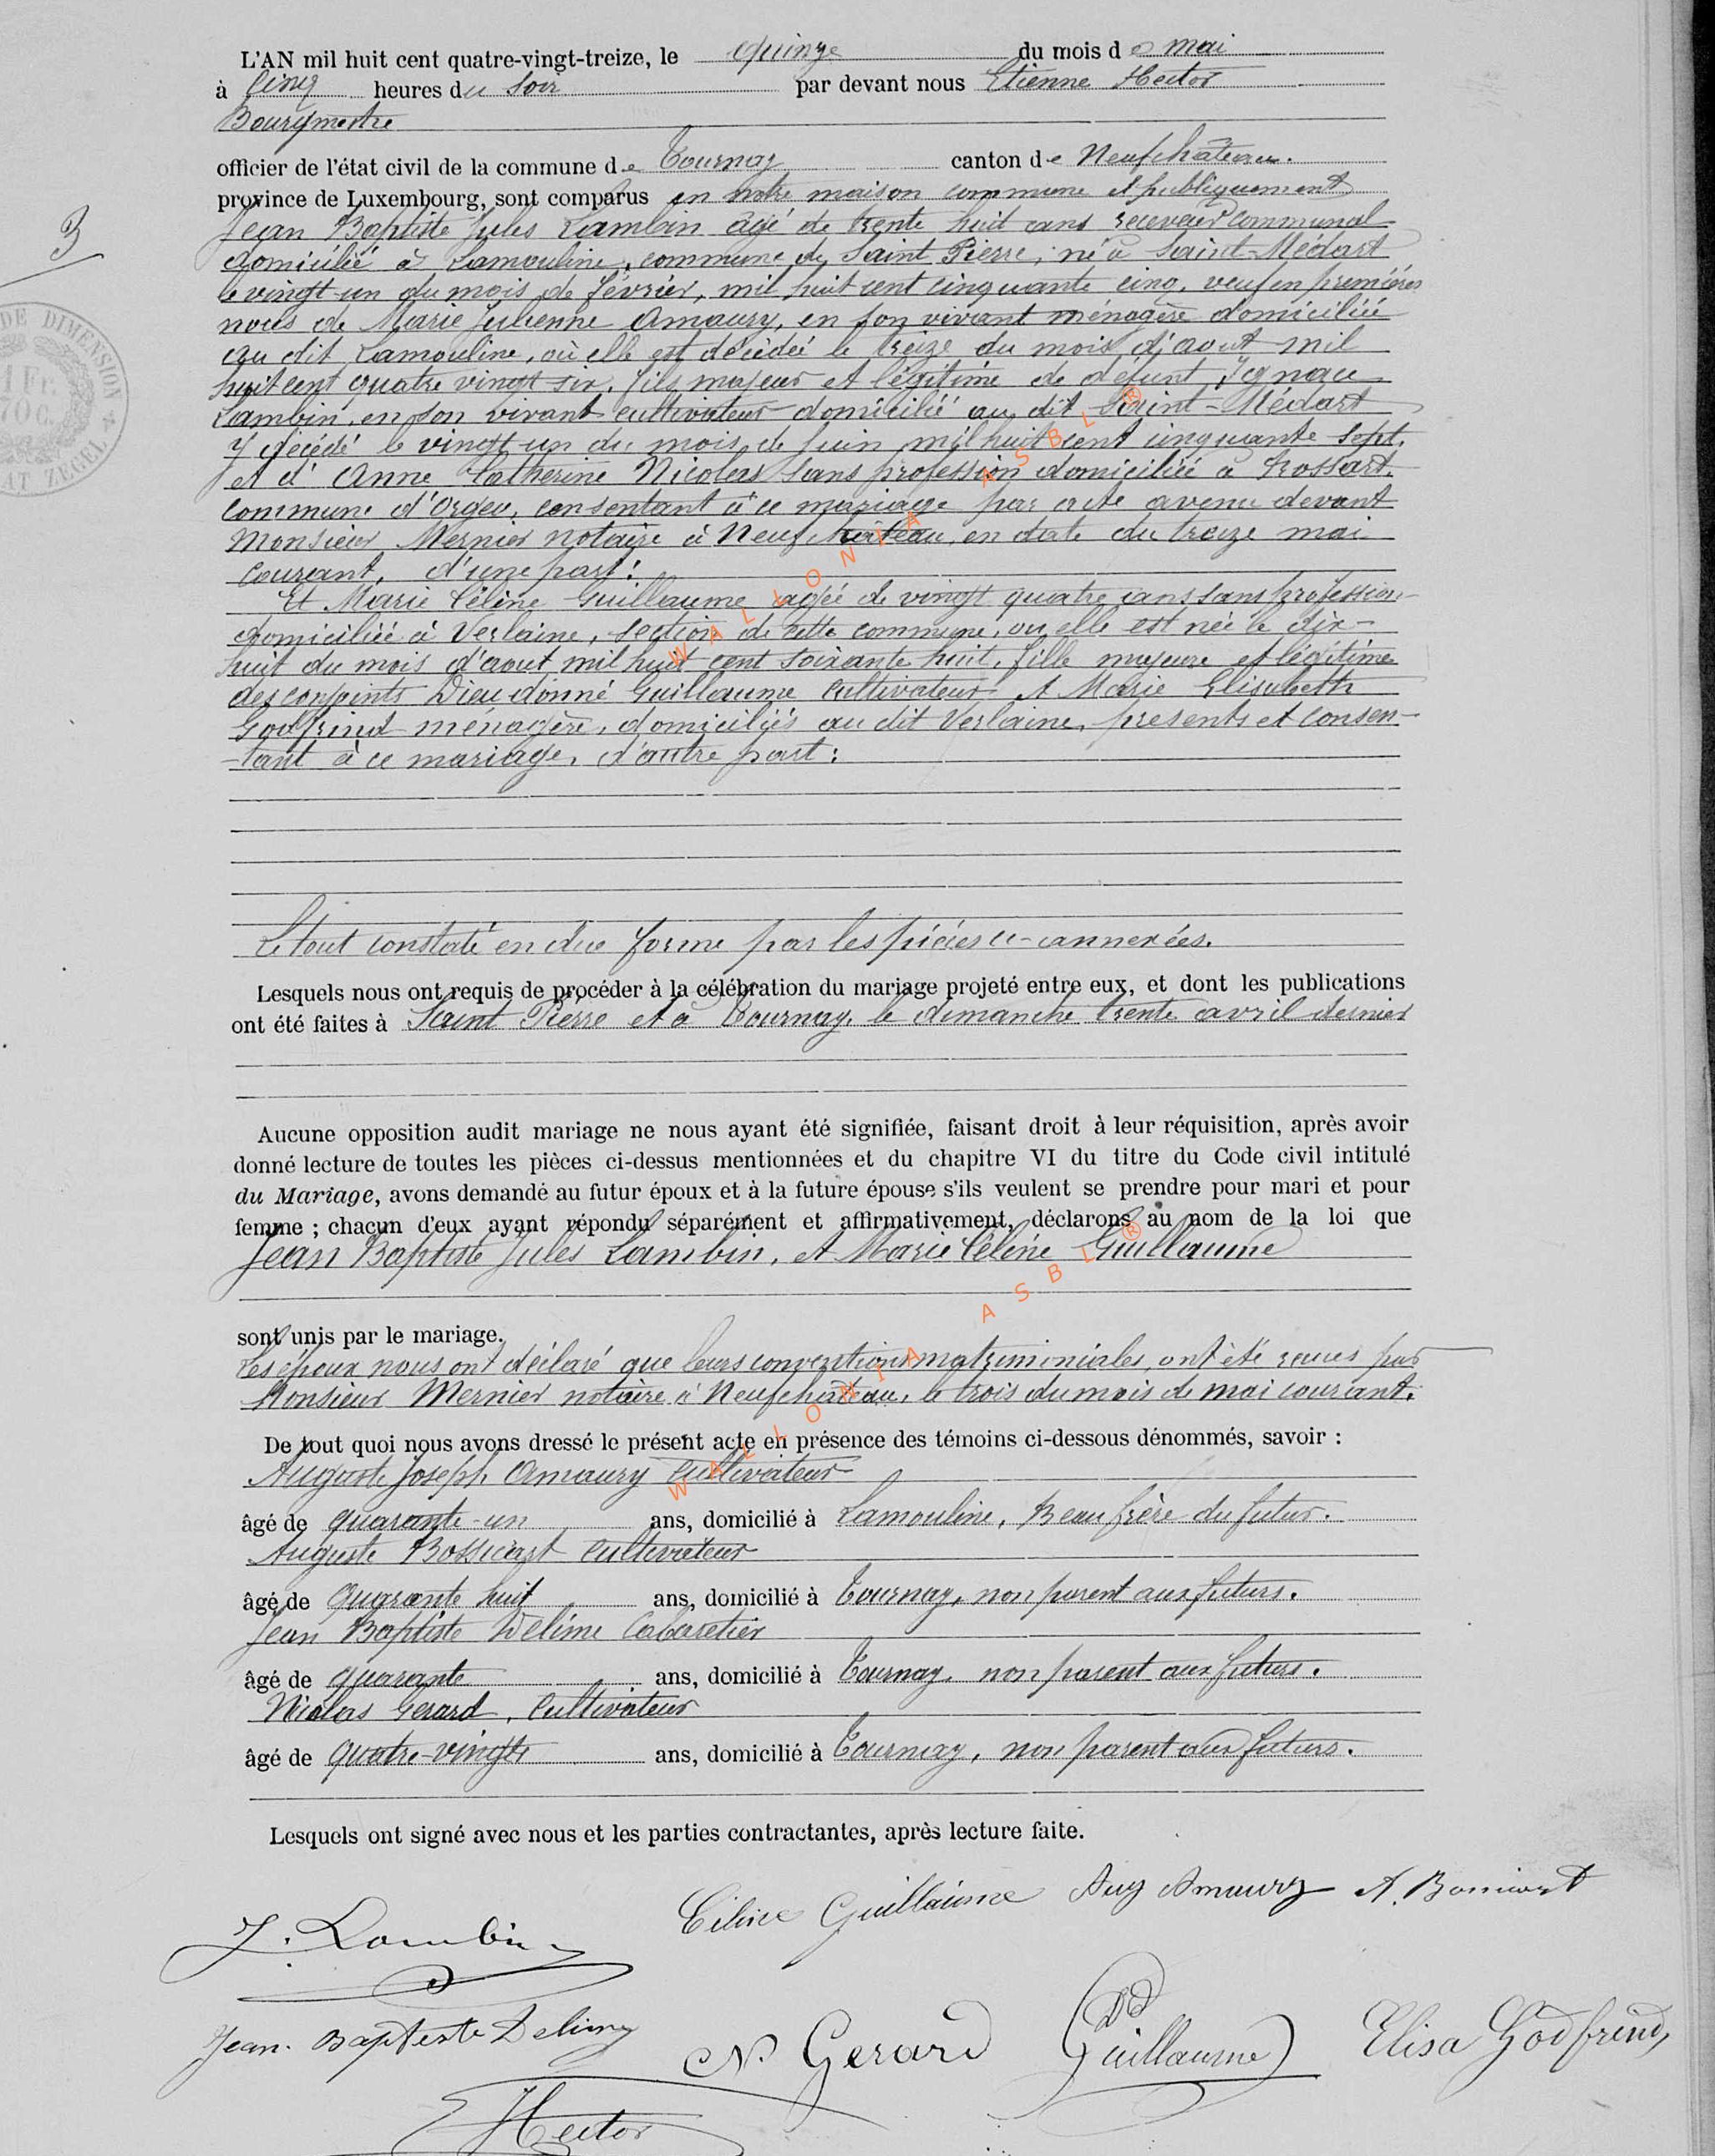 3
DE DIMENSION
1 Fr.
70 C.
AT ZEGEL
L'AN mil huit cent quatre-vingt-treize, le quinze du mois de mai
à cinq heures du soir par devant nous Etienne Hector
Bourgmestre
officier de l'état civil de la commune de Tournay canton de Neufchâteau.
province de Luxembourg, sont comparus en notre maison commune et publiquement
Jean Baptiste Jules Lambin âgé de trente huit ans receveur communal
domicilié à Lamouline, commune de Saint Pierre, né à Saint-Médart
le vingt-un du mois de février, mil huit cent cinquante cinq, veuf en premières
noces de Marie Julienne Amaury, en son vivant ménagère domiciliée
au dit Lamouline, où elle est décédée le treize du mois d'aout mil
huit cent quatre vingt six, fils majeur et légitime de défunt Ignace
Lambin, en son vivant cultivateur domicilié au dit Saint-Médart
y décédé le vingt-un du mois de juin mil huit cent cinquante sept,
et d'Anne Catherine Nicolas sans profession domiciliée à Rossart,
commune d'Orgeo, consentant à ce mariage par acte avenu devant
Monsieur Mernier notaire à Neufchâteau, en date du treize mai
courant, d'une part:
Et Marie Céline Guillaume agée de vingt quatre ans sans profession
domiciliée à Verlaine, section de cette commune, ou elle est née le dix-
huit du mois d'aout mil huit cent soixante huit, fille majeure et légitime
des conjoints Dieudonné Guillaume cultivateur et Marie Elisabeth
Godfrind ménagère, domiciliés au dit Verlaine, présents et consen-
-tant à ce mariage, d'autre part:
Le tout constaté en due forme par les pièces ci-annexées.
Lesquels nous ont requis de procéder à la célébration du mariage projeté entre eux, et dont les publications
ont été faites à Saint Pierre et à Tournay, le dimanche trente avril dernier
Aucune opposition audit mariage ne nous ayant été signifiée, faisant droit à leur réquisition, après avoir
donné lecture de toutes les pièces ci-dessus mentionnées et du chapitre VI du titre du Code civil intitulé
du Mariage, avons demandé au futur époux et à la future épouse s'ils veulent se prendre pour mari et pour
femme ; chacun d'eux ayant répondu séparément et affirmativement, déclarons au nom de la loi que
Jean Baptiste Jules Lambin, et Marie Céline Guillaume
sont unis par le mariage.
Les époux nous ont déclaré que leurs conventions matrimoniales, ont été reçues par
Monsieur Mernier notaire à Neufchâteau, le trois du mois de mai courant.
De tout quoi nous avons dressé le présent acte en présence des témoins ci-dessous dénommés, savoir :
Auguste Joseph Amaury cultivateur
âgé de quarante-un ans, domicilié à Lamouline, Beau frère du futur.
Auguste Bossicart cultivateur
âgé de quarante huit ans, domicilié à Tournay, non parent aux futurs.
Jean Baptiste Delime Cabaretier
âgé de quarante ans, domicilié à Tournay, non parent aux futurs.
Nicolas Gerard, cultivateur
âgé de quatre-vingts ans, domicilié à Tournay, non parent aux futurs.
Lesquels ont signé avec nous et les parties contractantes, après lecture faite.
J. Lambin Céline Guillaume Aug Amaury A. Bossicart
Jean. Baptiste Delime N. Gerard Dd Guillaume Elisa Godfrind
Hector
WALLONIA ASBL®
WALLONIA ASBL®